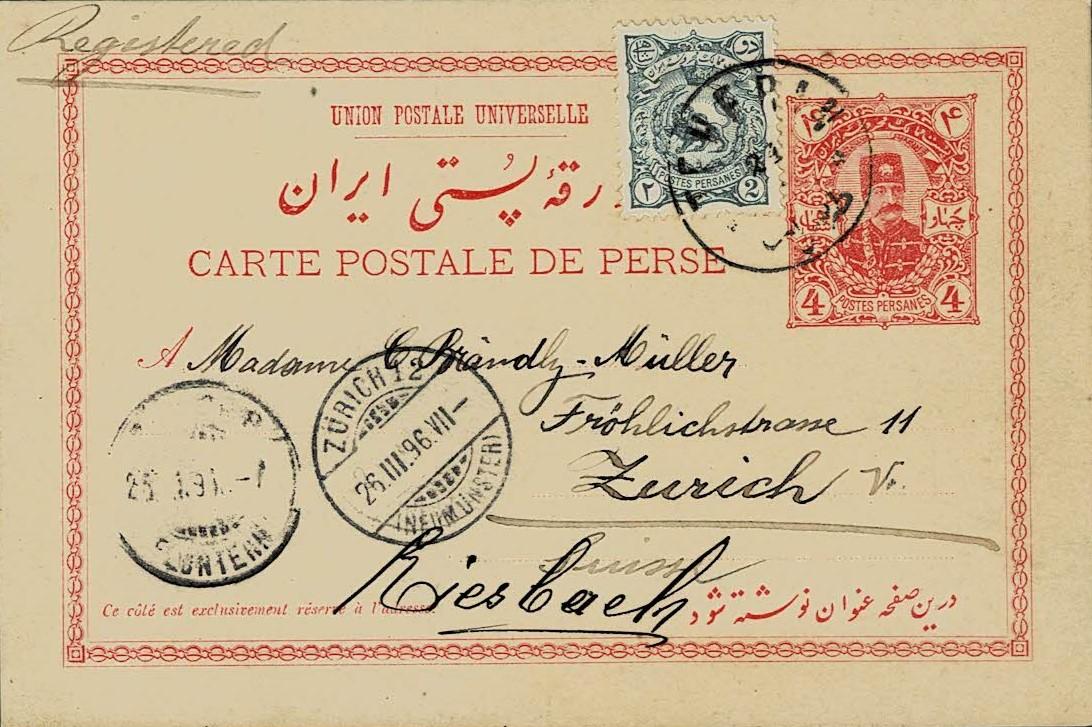 Registered
UNION POSTALE UNIVERSELLE
ورقهٔ پُستی ایران
CARTE POSTALE DE PERSE
۲ POSTES PERSANES 2
۴ ۴
چهار
4 POSTES PERSANES 4
A Madame C. Brändly-Müller
Fröhlichstrasse 11
Zurich V.
Suisse
Riesbach
ZÜRICH 12
26.III.96.VII-
(NEUMÜNSTER)
FLUNTERN
Ce côté est exclusivement réservé à l'adresse.
درین صفحه عنوان نوشته شود